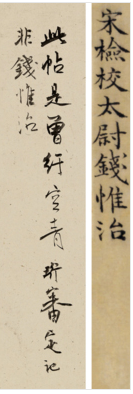 宋檢校太尉錢惟治
此帖是曾紆空青所審定記
非錢惟治